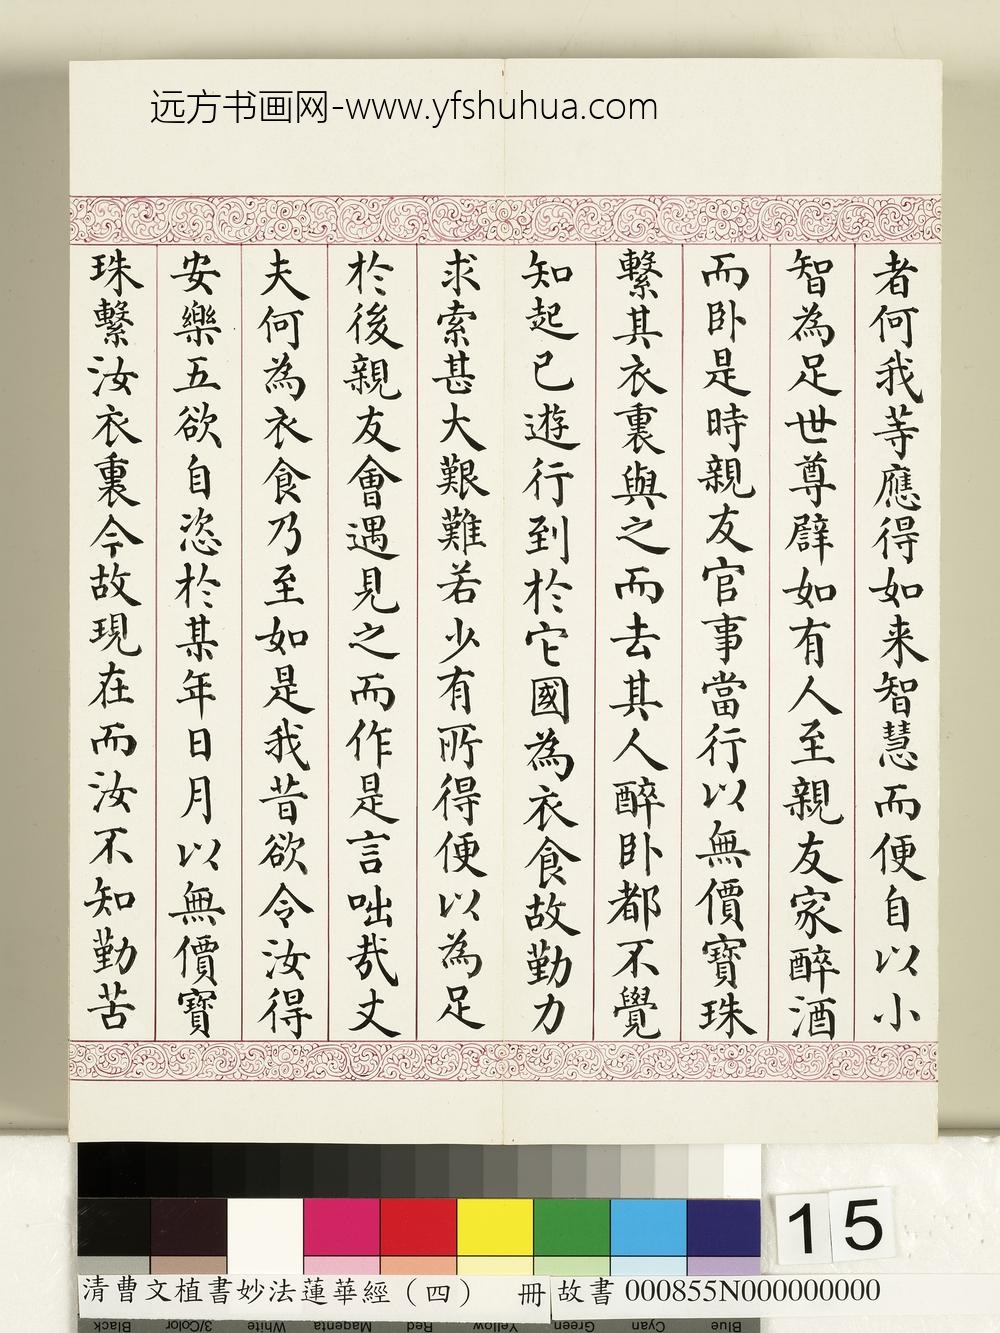 远方书画网-www.yfshuhua.com
者何我等應得如来智慧而便自以小
智為足世尊辟如有人至親友家醉酒
而卧是時親友官事當行以無價寶珠
繫其衣裏與之而去其人醉卧都不覺
知起已遊行到於它國為衣食故勤力
求索甚大艱難若少有所得便以為足
於後親友會遇見之而作是言咄哉丈
夫何為衣食乃至如是我昔欲令汝得
安樂五欲自恣於某年日月以無價寶
珠繫汝衣裏今故現在而汝不知勤苦
15
清曹文植書妙法蓮華經（四） 冊 故書 000855N000000000
Black 3/Color White Magenta Red Yellow Green Cyan Blue